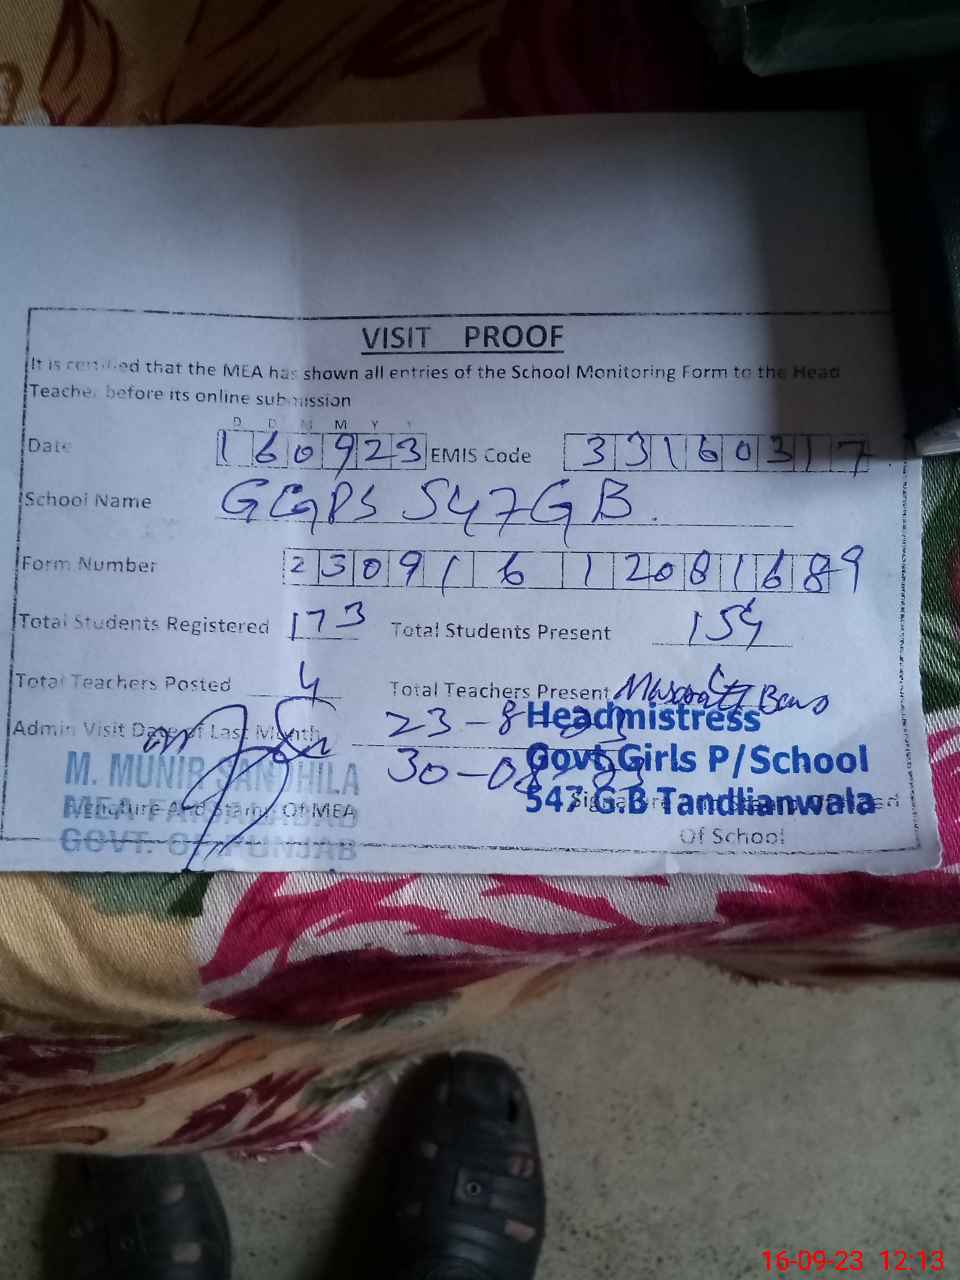 VISIT PROOF
It is certified that the MEA has shown all entries of the School Monitoring Form to the Head
Teacher before its online submission
D D M M Y Y
Date 160923 EMIS Code 33160317
School Name GGPS 547GB.
Form Number 23091612081689
Total Students Registered 173 Total Students Present 154
Total Teachers Posted 4 Total Teachers Present
Admin Visit Date of Last Month 23-8
30-08-23
M. MUNIR
MEA FAISALABAD
GOVT. OF PUNJAB
Signature And Stamp Of MEA
Headmistress
Govt Girls P/School
547 G.B Tandlianwala
Signature
Of School
16-09-23 12:13